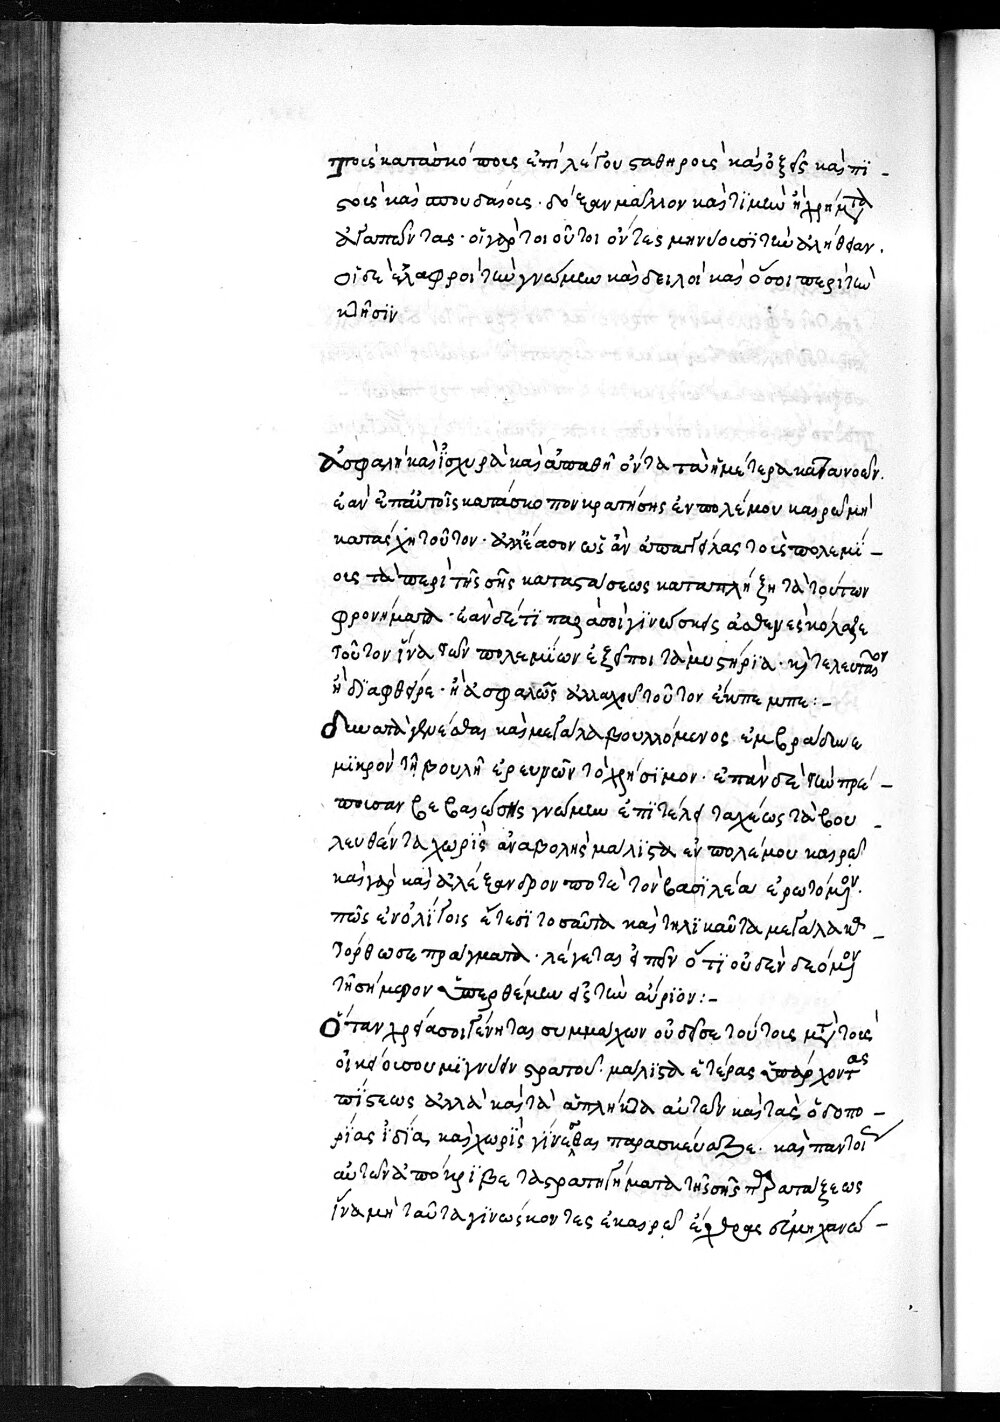 τοῖς κατασκόποις ἐπιλέγου σταθηροῖς καὶ ὀξεῖς καὶ πϊ-
στοῖς καὶ σπουδαίοις
ἀγαπῶντας· οἱ γὰρ τοιοῦτοι ὄντες μηνύουσϊ τὴν ἀλήθειαν.
οἱ δὲ ἐλαφροὶ τὴν γνώμην καὶ δειλοὶ καὶ ὅσοι περὶ τὴν
κλῆσϊν
ἀσφαλῆ καὶ ἰσχυρὰ καὶ ἀπαθῆ ὄντα τὰ ἡμέτερα κατανοεῖν.
ἐὰν ἐπ' αὐτοῖς κατάσκοπον κρατήσης ἐν πολέμου καιρῶ μὴ
κατάσχη τοῦτον· ἀλλ' ἔασον ὡς ἂν ἀπαγγείλας τοῖς πολεμΐ-
οις τὰ περὶ τῆς σῆς καταστάσεως καταπλήξη τὰ τούτων
φρονήματα· ἐὰν δέ τϊ παρά σοι γϊνώσκεις ἀσθενὲς κόλαζε
τοῦτον ἵνα τῶν πολεμΐων ἐξείποι τὰ μυστήρϊα· καὶ τελευταῖον
ἢ δϊάφθειρε· ἢ ἀσφαλῶς ἀλλαχοῦ τοῦτον ἔκπεμπε:-
δεινὰ μεγάλα βουλλόμενος ἐμβράδυνε
μϊκρὸν τῆ βουλῆ ἐρευνῶν τὸ χρήσϊμον· ἐπὰν δὲ τὴν πρέ-
ποισαν βεβαιώσης γνώμην ἐπϊτέλει ταχέως τὰ βου-
λευθέντα χωρϊς ἀναβολῆς μάλϊστα ἐν πολέμου καιρῶ
καὶ γὰρ καὶ ἀλέξανδρον ποτὲ τὸν βασϊλέα ἐρωτόμενον.
πῶς ἐν ὀλίγοις ἔτεσϊ τοσαῦτα καὶ τηλϊκαῦτα μεγάλα κα-
τόρθωσε πράγματα· λέγεται εἰπεῖν ὅτϊ οὐδὲν δεόμενον
τῆ σήμερον ὑπερθέμην εἰς τὴν αὔρϊον:-
Ὅταν χρεία σοι γένηται συμμάχων οὐ δεῖ σε τούτοις μετὰ τοῖς
οἰκείοις συμϊγνύειν στρατοῦ· μάλϊστα ἑτέρας ὑπάρχοντας
πΐστεως ἀλλὰ καὶ τὰ ἄπληκτα αὐτῶν καὶ τὰς ὁδοιπο-
ρΐας ἰδΐα καὶ χωρϊς γΐνεσθαι παρασκεύαζε· καὶ παντοίως
αὐτῶν ἀπόκρϊβε τὰ στρατηγήματα τῆς σῆς παραταξεως
ἵνα μὴ ταῦτα γϊνώσκοντες ἐκαιρῶ ἔχθρας